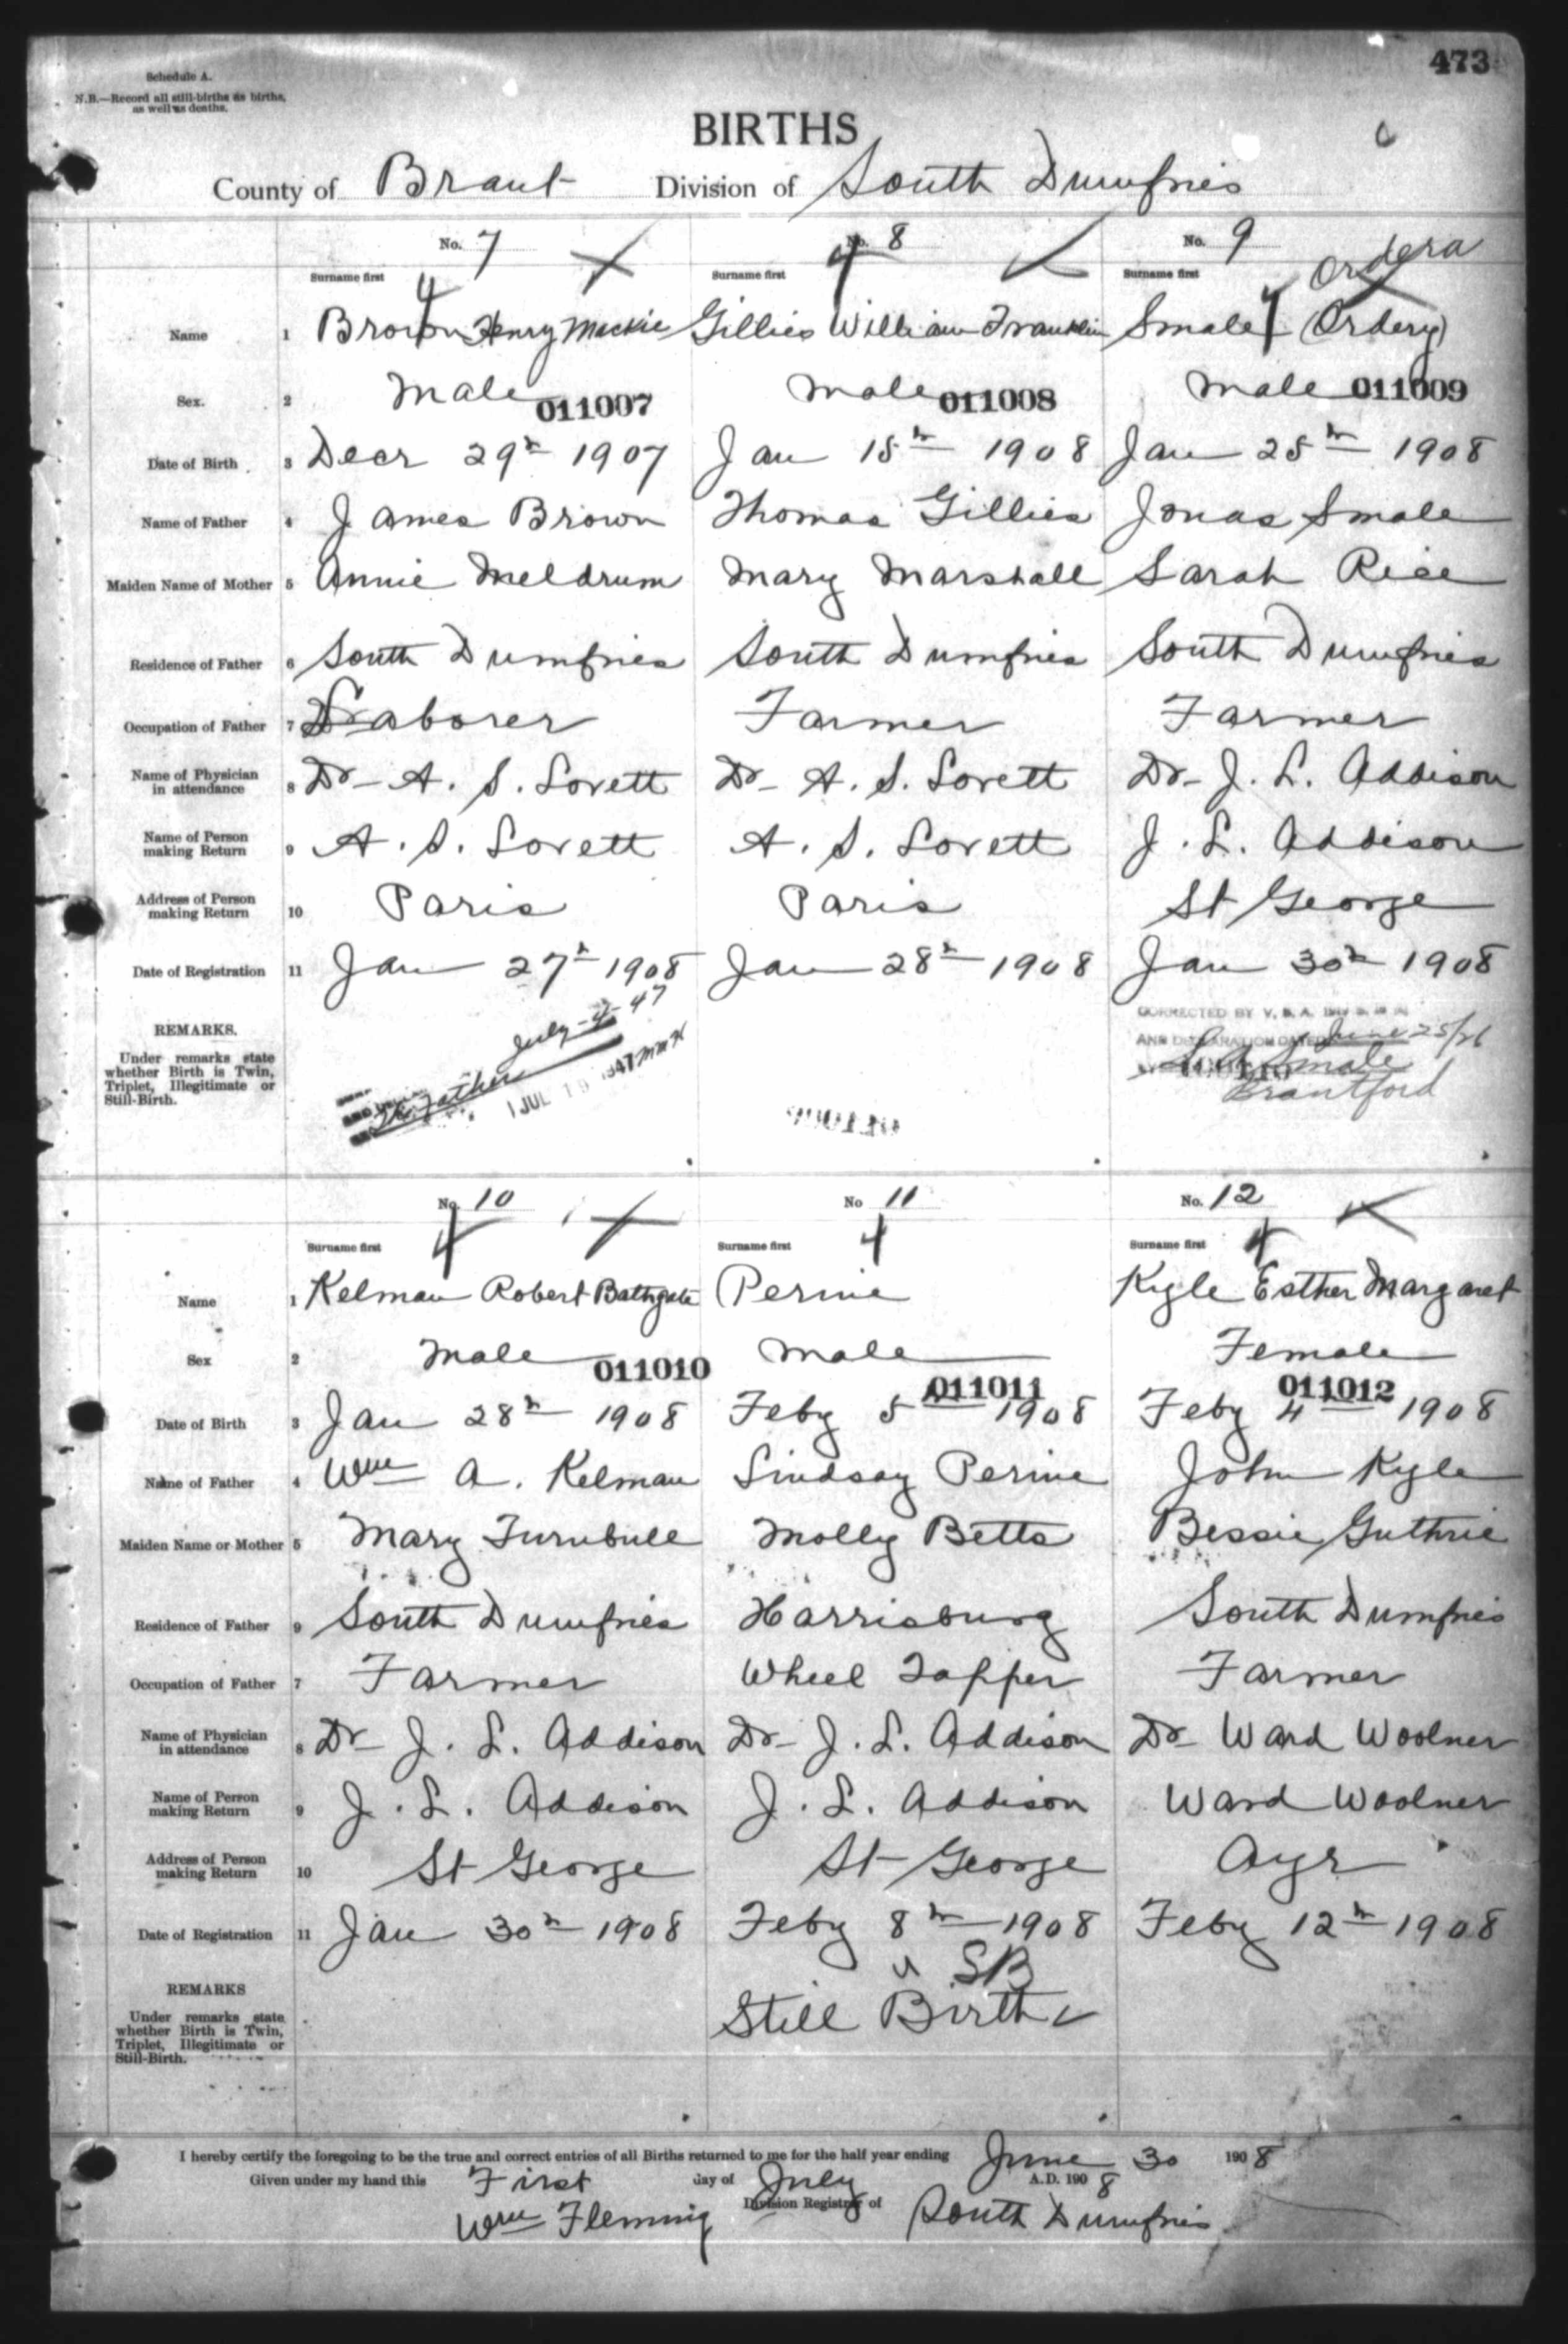 473
Schedule A.
N.B.—Record all still-births as births,
as well as deaths.
BIRTHS
County of Brant Division of South Dumfries
No. 7 No. 8 No. 9
Ordera
Surname first Surname first Surname first
4 4 4
Name 1 Brown Henry Mackie Gillies William Franklin Smale (Ordery)
Sex. 2 Male 011007 Male 011008 Male 011009
Date of Birth 3 Decr 29th 1907 Jan 15th 1908 Jan 25th 1908
Name of Father 4 James Brown Thomas Gillies Jonas Smale
Maiden Name of Mother 5 Annie Meldrum Mary Marshall Sarah Rice
Residence of Father 6 South Dumfries South Dumfries South Dumfries
Occupation of Father 7 Laborer Farmer Farmer
Name of Physician in attendance 8 Dr A. S. Lovett Dr A. S. Lovett Dr J. L. Addison
Name of Person making Return 9 A. S. Lovett A. S. Lovett J. L. Addison
Address of Person making Return 10 Paris Paris St George
Date of Registration 11 Jan 27th 1908 Jan 28th 1908 Jan 30th 1908
REMARKS.
Under remarks state
whether Birth is Twin,
Triplet, Illegitimate or
Still-Birth.
July-4-47
Father
JUL 1947
CORRECTED BY V. S. A.
AND DECLARATION DATED June 25/26
Smale
Brantford
No. 10 No 11 No. 12
Surname first Surname first Surname first
4 4 4
Name 1 Kelman Robert Bathgate Perine Kyle Esther Margaret
Sex 2 Male 011010 Male Female
011011 011012
Date of Birth 3 Jan 28th 1908 Feby 5th 1908 Feby 4th 1908
Name of Father 4 Wm A. Kelman Lindsay Perine John Kyle
Maiden Name or Mother 5 Mary Turnbull Molly Betts Bessie Guthrie
Residence of Father 9 South Dumfries Harrisburg South Dumfries
Occupation of Father 7 Farmer Wheel Tapper Farmer
Name of Physician in attendance 8 Dr J. L. Addison Dr J. L. Addison Dr Ward Woolner
Name of Person making Return 9 J. L. Addison J. L. Addison Ward Woolner
Address of Person making Return 10 St George St George Ayr
Date of Registration 11 Jan 30th 1908 Feby 8th 1908 Feby 12th 1908
SB
Still Birth
REMARKS
Under remarks state
whether Birth is Twin,
Triplet, Illegitimate or
Still-Birth.
I hereby certify the foregoing to be the true and correct entries of all Births returned to me for the half year ending June 30 1908
Given under my hand this First day of July A.D. 1908
Wm Fleming Division Registrar of South Dumfries